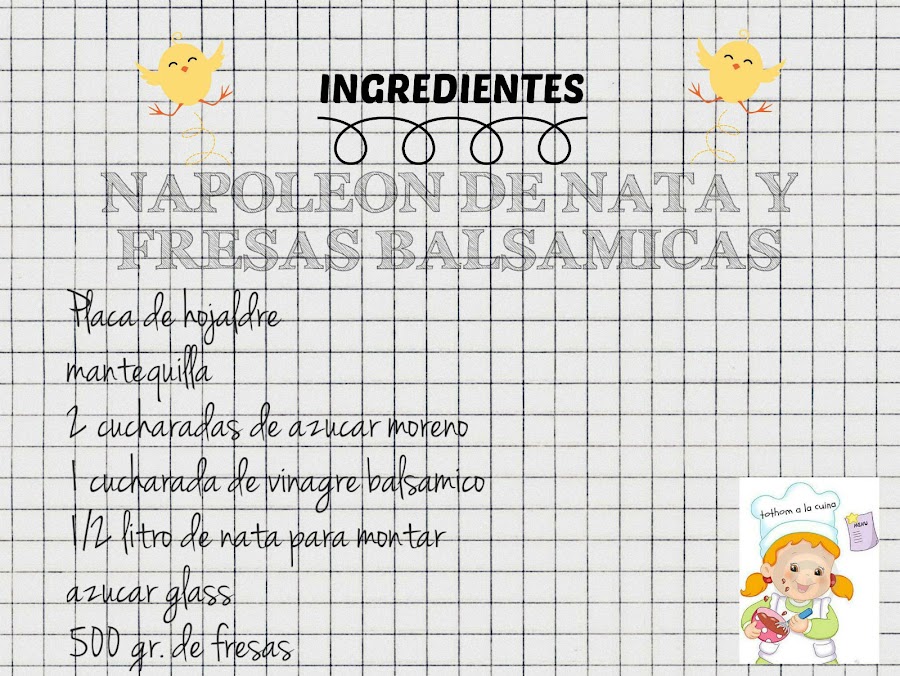 INGREDIENTES
NAPOLEON DE NATA Y
FRESAS BALSAMICAS
Placa de hojaldre
mantequilla
2 cucharadas de azucar moreno
1 cucharada de vinagre balsamico
1/2 litro de nata para montar
azucar glass
500 gr. de fresas
tothom a la cuina
MENU